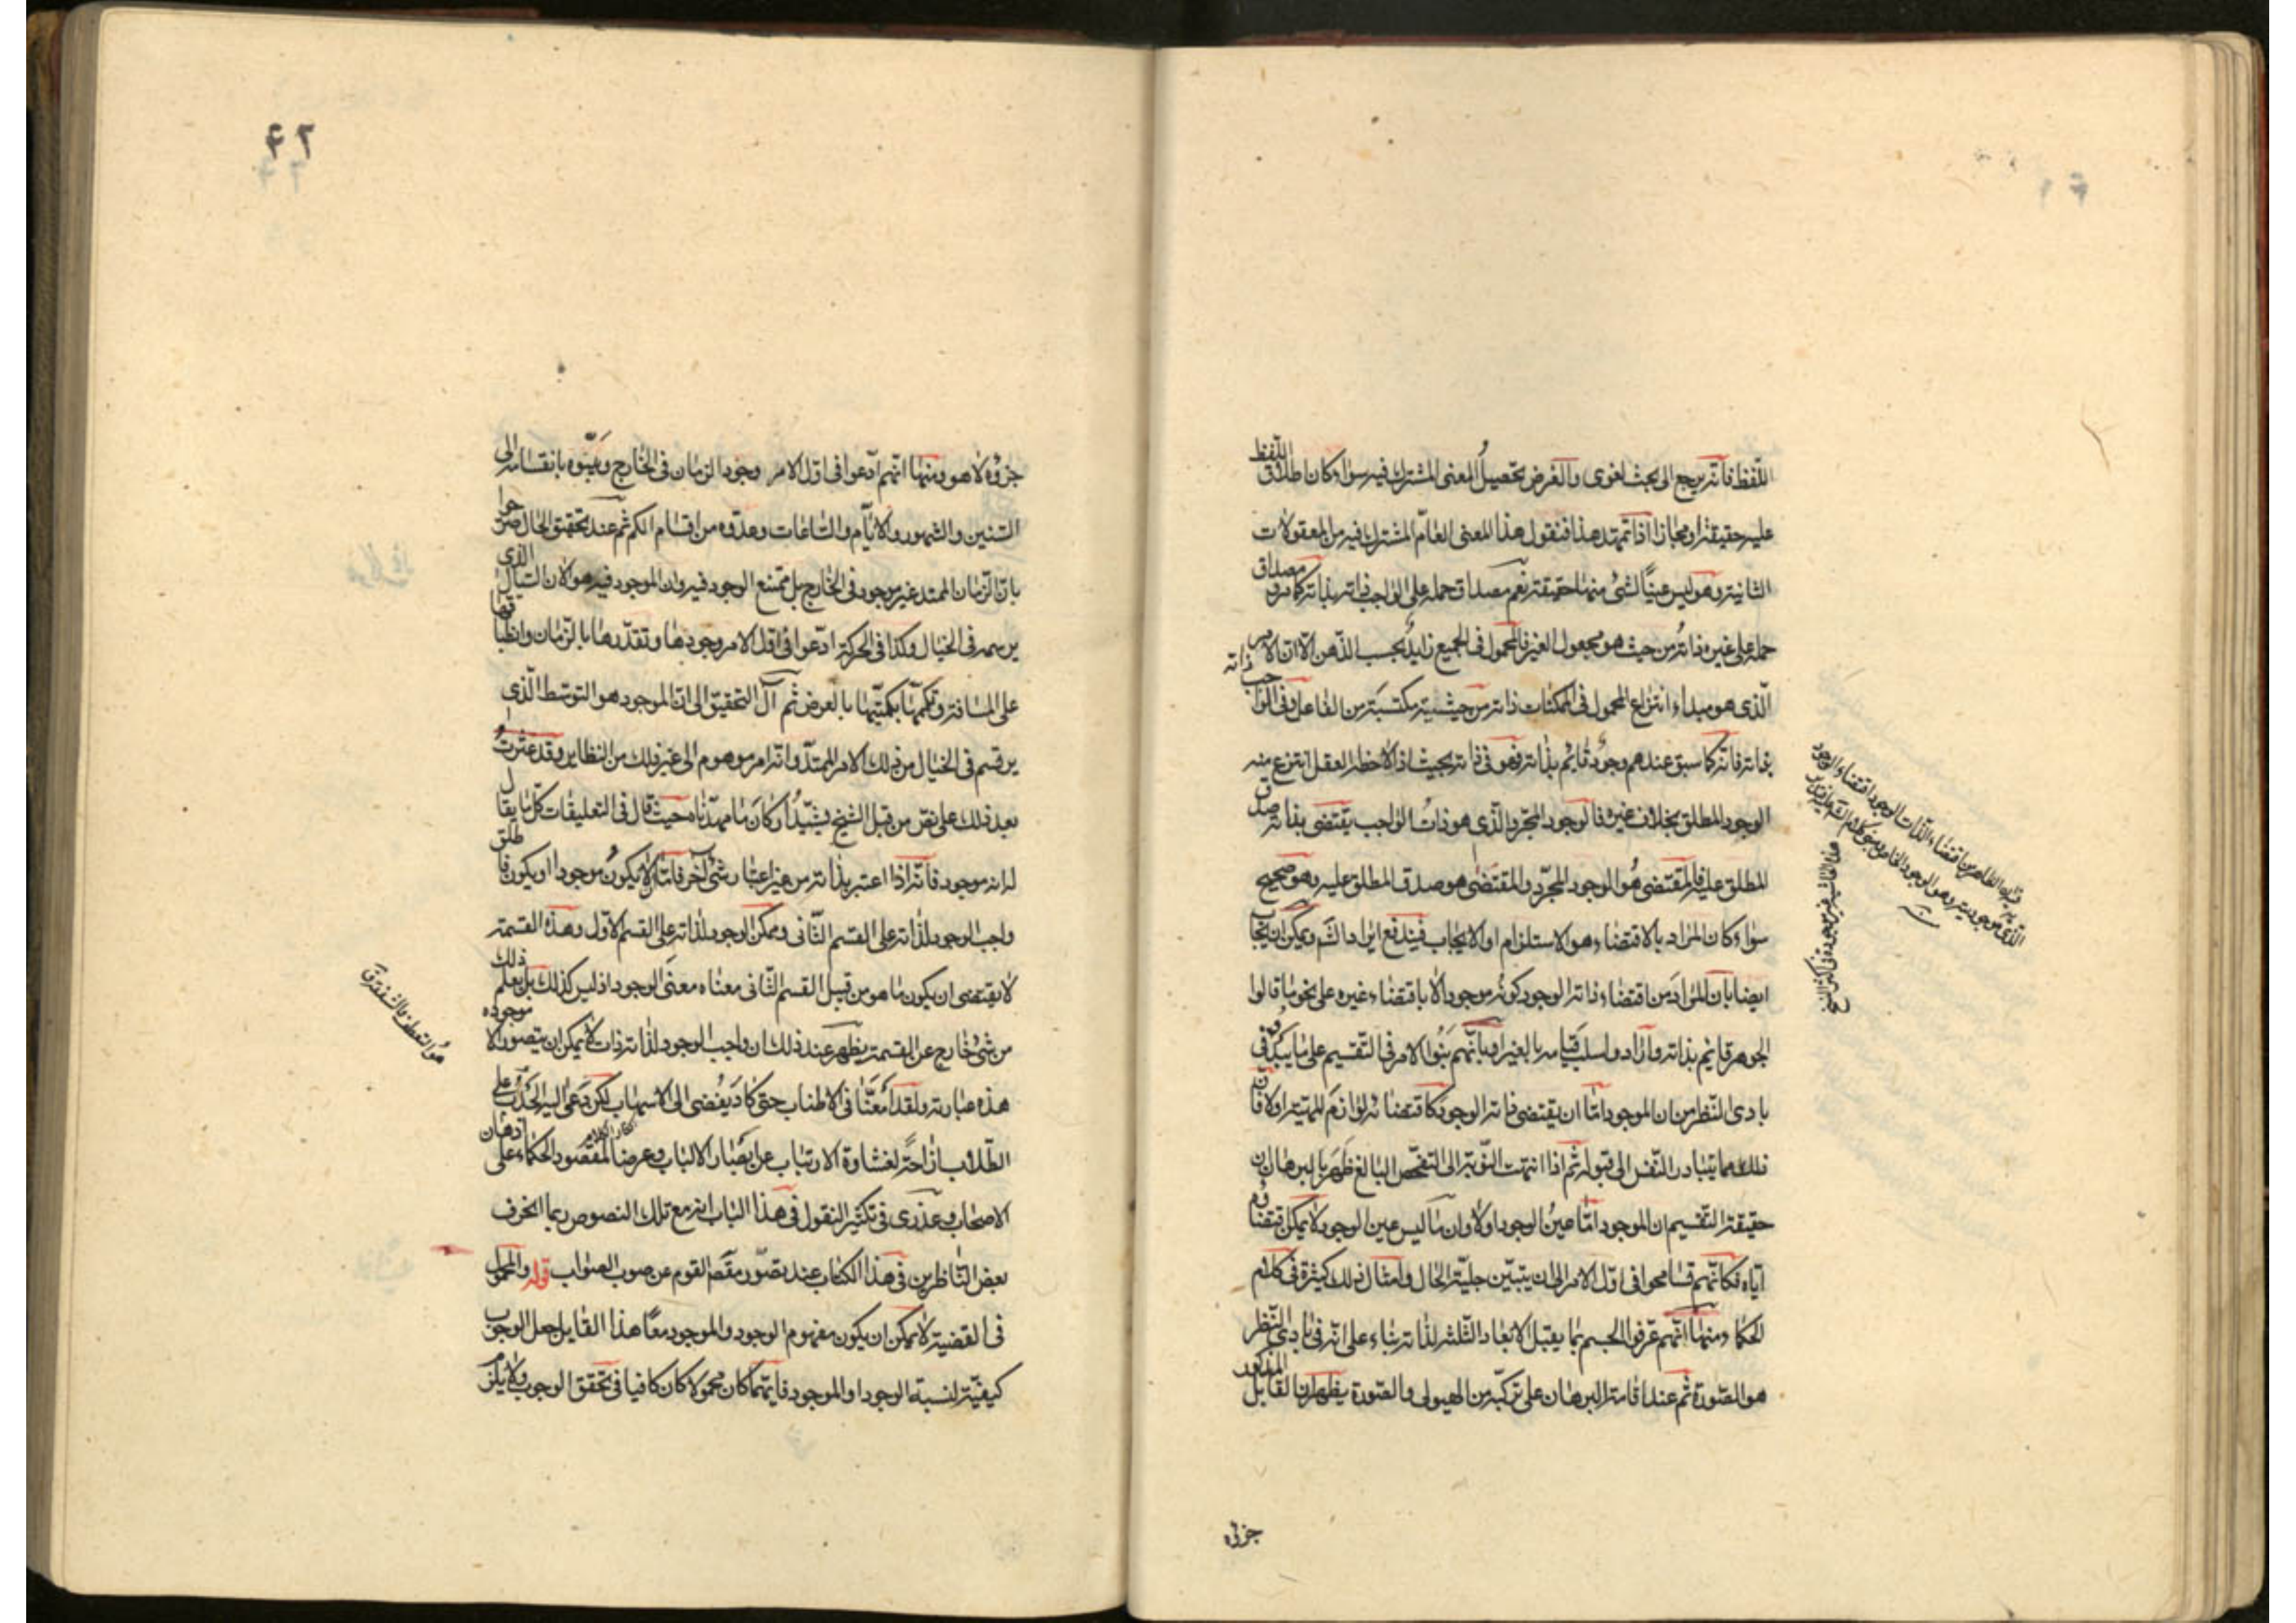 اللفظ فانه يرجع الى بحث لغوى والغرض تحصيل المعنى المشترك فيه سواء كان اطلاق اللفظ
عليه حقيقة او مجازا اذا تمهد هذا فنقول هذا المعنى العام المشترك فيه من المعقولات
الثانية وهو ليس عينا لشئ منها حقيقة نعم مصداق حمله على الواجب ذاته بذاته كما مر ومصداق
حمله على غيره ذاته من حيث هو مجعول الغير فالمحمول فى الجميع زايد بحسب الذهن الا ان الامر
الذى هو مبداء انتزاع المحمول فى الممكنات ذاته من حيثية مكتسبة من الفاعل وفى الواجب ذاته
بذاته فانه كما سبق عندهم وجود قايم بذاته فهو فى ذاته بحيث اذا لاحظه العقل انتزع منه
الوجود المطلق بخلاف غيره فالوجود المجرد الذى هو ذات الواجب يقتضى بذاته صدق
المطلق عليه فالمقتضى هو الوجود المجرد والمقتضى هو صدق المطلق عليه وهو صحيح
سواء كان المراد بالاقتضاء هو الاستلزام او الايجاب فيندفع ايراد الشم ويمكن ان يجاب
ايضا بان المراد من اقتضاء ذاته الوجود كونه موجودا لا باقتضاء غيره على نحو ما قالوا
الجوهر قايم بذاته وارادوا سلب قيامه بالغير او بانهم بنوا الامر فى التقسيم على ما يبدو فى
بادى النظر من ان الموجود اما ان يقتضى ذاته الوجود كاقتضائه لوازم المهية او لا فان
ذلك مما يتبادر النفس الى قبوله ثم اذا انتهت النوبة الى التفحص البالغ ظهر بالبرهان ان
حقيقة التقسيم ان الموجود اما عين الوجود او لا وان ما ليس عين الوجود لا يمكن اقتضاؤه
اياه فكانهم تسامحوا فى اول الامر الى ان يتبين جلية الحال وامثال ذلك كثيرة فى كلام
الحكماء ومنها انهم عرفوا الجسم بما يقبل الابعاد الثلثة لذاته بناء على انه فى بادى النظر
هو الصورة ثم عند اقامة البرهان على تركبه من الهيولى والصورة يظهر ان القابل المذكور
جزؤه
هذه الحاشية غير موجودة فى اكثر النسخ
جزؤه لا هو ومنها انهم ادعوا فى اول الامر وجود الزمان فى الخارج وبينوه بانقسامه الى
السنين والشهور والايام والساعات وعدوه من اقسام الكم ثم عند تحقيق الحال صرحوا
بان الزمان الممتد غير موجود فى الخارج بل ممتنع الوجود فيه وان الموجود فيه هو الان السيال الذى
يرسمه فى الخيال وكذا فى الحركة ادعوا فى اول الامر وجودها وتقدرها بالزمان وانطباقها
على المسافة وتكممها بكميتها بالعرض ثم آل التحقيق الى ان الموجود هو التوسط الذى
يرتسم فى الخيال من ذلك الامر الممتد وانه امر موهوم الى غير ذلك من النظاير وقد عثرت
بعد ذلك على نص من قبل الشيخ يشيد اركان ما مهدناه حيث قال فى التعليقات كل ما يقال
له انه موجود فانه اذا اعتبر بذاته من غير اعتبار شئ آخر فاما ان لا يكون موجودا او يكون فا طلق
واجب الوجود لذاته على القسم الثانى وممكن الوجود لذاته على القسم الاول وهذه القسمة
لا يقتضى ان يكون ما هو من قبيل القسم الثانى معناه معنى الوجود اذ ليس كذلك بل يعلم ذلك
من شئ خارج عن القسمة يظهر عند ذلك ان واجب الوجود لذاته ذات لا يمكن ان يتصور الا موجوده
هذه عبارته ولقد امعنا فى الاطناب حتى كاد يفضى الى الاسهاب لكن دعى اليه الحدب على
الطلاب ازاحة لغشاوة الارتياب عن ابصار الالباب وعرضا لمقصود الحكماء على اذهان
الاصحاب وعذرى فى تكثير النقول فى هذا الباب انه مع تلك النصوص ربما انحرف
بعض الناظرين فى هذا الكتاب عند تصور مقصد القوم عن صوب الصواب قوله والمحمول
فى القضية لا يمكن ان يكون مفهوم الوجود والموجود معا هذا القايل جعل الوجوب
كيفية لنسبة الوجود او الموجود فايهما كان محمولا كان كافيا فى تحقق الوجوب ولا يلزم